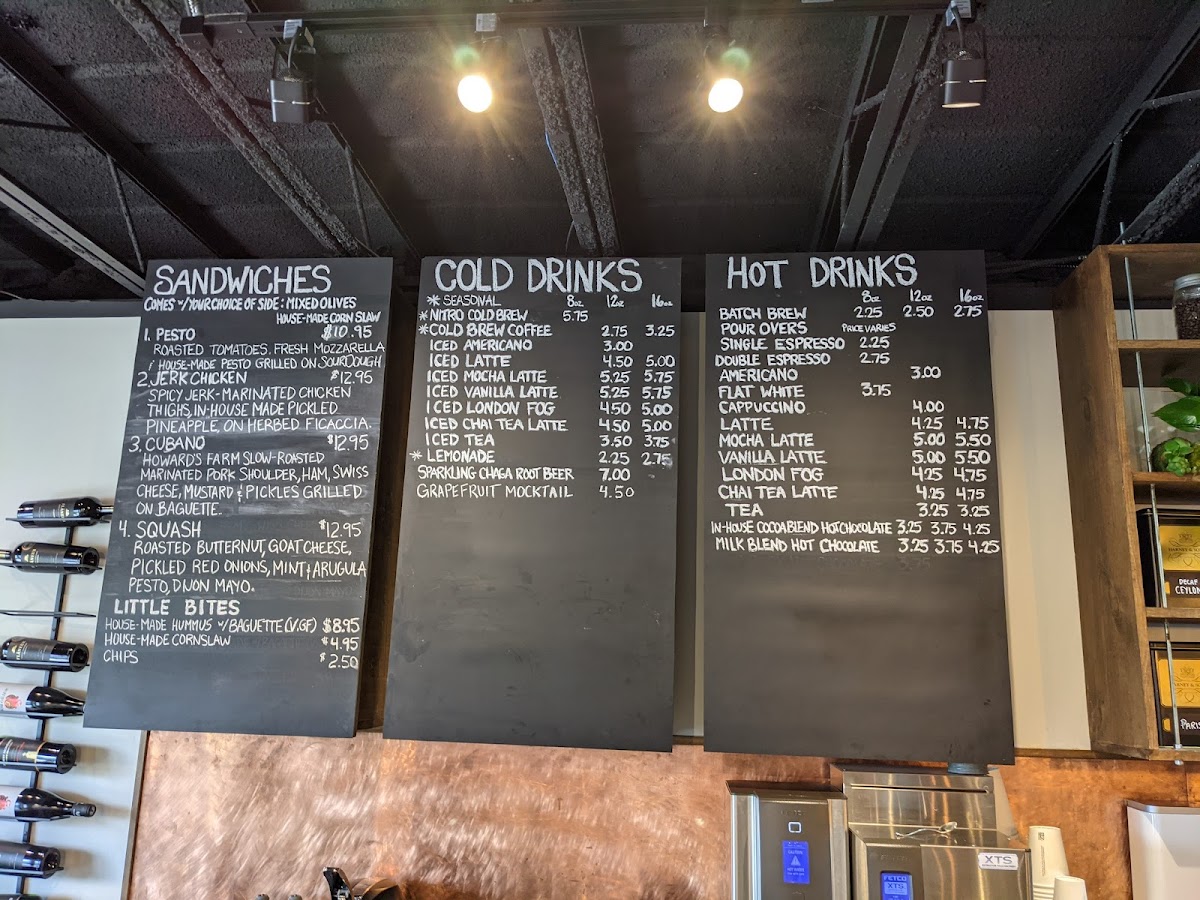 SANDWICHES
COMES W/ YOUR CHOICE OF SIDE: MIXED OLIVES
HOUSE-MADE CORN SLAW
1. PESTO $10.95
ROASTED TOMATOES. FRESH MOZZARELLA
& HOUSE-MADE PESTO GRILLED ON SOURDOUGH
2. JERK CHICKEN $12.95
SPICY JERK-MARINATED CHICKEN
THIGHS, IN-HOUSE MADE PICKLED
PINEAPPLE, ON HERBED FICACCIA.
3. CUBANO $12.95
HOWARD'S FARM SLOW-ROASTED
MARINATED PORK SHOULDER, HAM, SWISS
CHEESE, MUSTARD & PICKLES GRILLED
ON BAGUETTE.
4. SQUASH $12.95
ROASTED BUTTERNUT, GOAT CHEESE,
PICKLED RED ONIONS, MINT & ARUGULA
PESTO, DIJON MAYO.
LITTLE BITES
HOUSE-MADE HUMMUS W/ BAGUETTE (V.GF) $8.95
HOUSE-MADE CORNSLAW $4.95
CHIPS $2.50
COLD DRINKS
* SEASONAL 8oz 12oz 16oz
* NITRO COLD BREW 5.75
* COLD BREW COFFEE 2.75 3.25
ICED AMERICANO 3.00
ICED LATTE 4.50 5.00
ICED MOCHA LATTE 5.25 5.75
ICED VANILLA LATTE 5.25 5.75
ICED LONDON FOG 4.50 5.00
ICED CHAI TEA LATTE 4.50 5.00
ICED TEA 3.50 3.75
* LEMONADE 2.25 2.75
SPARKLING CHAGA ROOT BEER 7.00
GRAPEFRUIT MOCKTAIL 4.50
HOT DRINKS
8oz 12oz 16oz
BATCH BREW 2.25 2.50 2.75
POUR OVERS PRICE VARIES
SINGLE ESPRESSO 2.25
DOUBLE ESPRESSO 2.75
AMERICANO 3.00
FLAT WHITE 3.75
CAPPUCCINO 4.00
LATTE 4.25 4.75
MOCHA LATTE 5.00 5.50
VANILLA LATTE 5.00 5.50
LONDON FOG 4.25 4.75
CHAI TEA LATTE 4.25 4.75
TEA 3.25 3.25
IN-HOUSE COCOA BLEND HOT CHOCOLATE 3.25 3.75 4.25
MILK BLEND HOT CHOCOLATE 3.25 3.75 4.25
DECAF
CEYLON
PARIS
FETCO
XTS
XTS